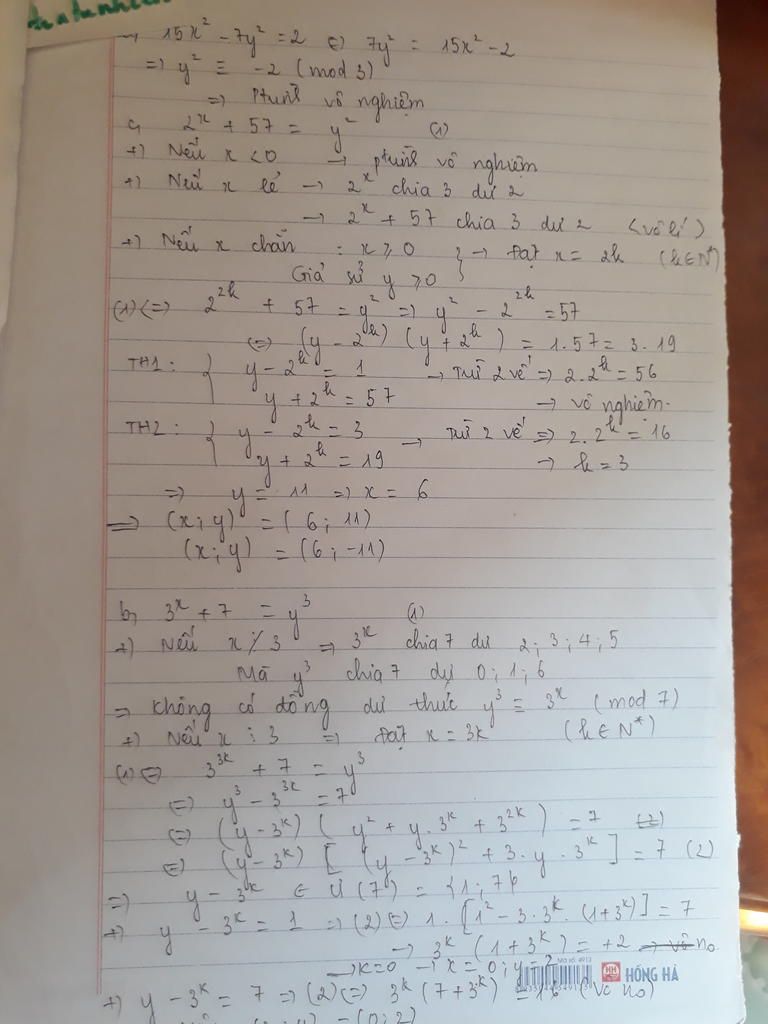 15x² - 7y² = 2 (=) 7y² = 15x² - 2
=> y² ≡ -2 (mod 3)
=> Ptrình vô nghiệm
c, 2^x + 57 = y² (1)
+) Nếu x < 0 → ptrình vô nghiệm
+) Nếu x lẻ → 2^x chia 3 dư 2
→ 2^x + 57 chia 3 dư 2 (vô lí)
+) Nếu x chẵn : x ≥ 0 } → Đặt x = 2k (k∈N*)
Giả sử y ≥ 0
(1) (=) 2^{2k} + 57 = y² => y² - 2^{2k} = 57
(=) (y - 2^k) (y + 2^k) = 1.57 = 3.19
TH1 : { y - 2^k = 1 → Trừ 2 vế => 2.2^k = 56
y + 2^k = 57 → vô nghiệm.
TH2 : { y - 2^k = 3 → Trừ 2 vế => 2.2^k = 16
y + 2^k = 19 → k = 3
=> y = 11 => x = 6
=> (x; y) = (6; 11)
(x; y) = (6; -11)
b, 3^x + 7 = y³ (1)
+) Nếu x ⋮̸ 3 => 3^x chia 7 dư 2; 3; 4; 5
Mà y³ chia 7 dư 0; 1; 6
=> Không có đồng dư thức y³ ≡ 3^x (mod 7)
+) Nếu x ⋮ 3 => Đặt x = 3k (k∈N*)
(1) (=) 3^{3k} + 7 = y³
(=) y³ - 3^{3k} = 7
(=) (y - 3^k) (y² + y.3^k + 3^{2k}) = 7 (2)
(=) (y - 3^k) [(y - 3^k)² + 3.y.3^k] = 7 (2)
=> y - 3^k ∈ Ư(7) = {1; 7}
+) y - 3^k = 1 => (2) (=) 1.[1² - 3.3^k.(1+3^k)] = 7
→ 3^k (1 + 3^k) = +2 → vô no
→ k=0 → x = 0; y = 2
MÃ SỐ: 4913
HH HỒNG HÀ
+) y - 3^k = 7 => (2) (=) 3^k (7 + 3^k) = 16 (vô no)
= (0; 2)